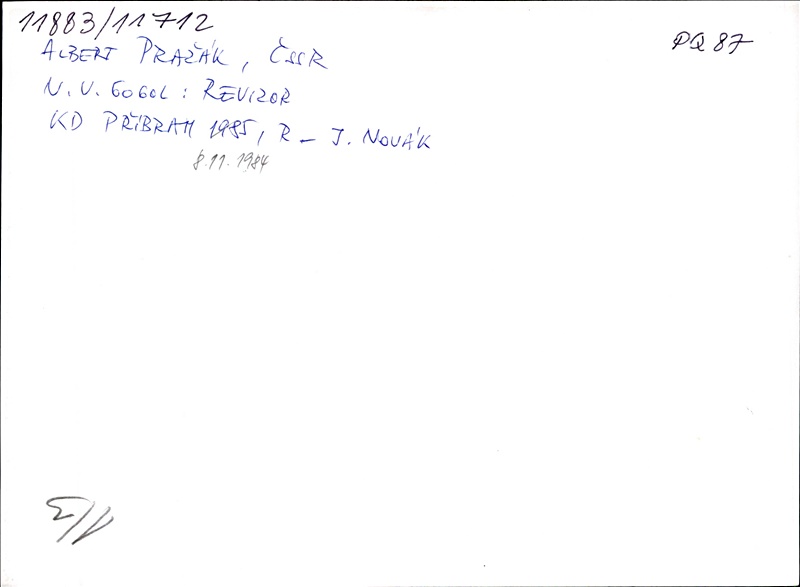 11883/11712
PQ 87
ALBERT PRAŽÁK, ČSSR
N. V. GOGOL: REVIZOR
KD PŘÍBRAM 1985, R – J. NOVÁK
8.11.1984